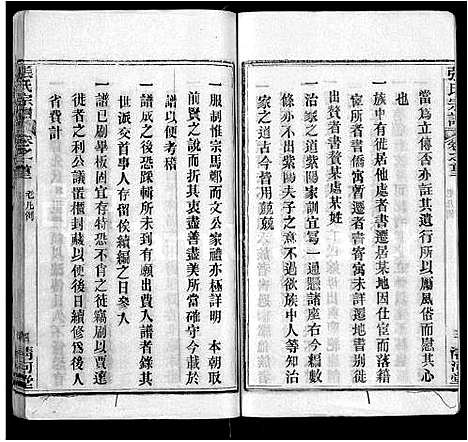 張氏宗譜
卷之首
三
清河堂
當爲立傳否亦註其遺行所以屬風俗而慰其心
一族中有徙居他處者書遷居某地因仕或因行
宦所遷者書僑寓寄寓未詳遷地書
出贅者書贅某處某姓
一家之道古紫陽家訓宜寫一通懸諸座右今續編
條亦不泯紫陽夫子之意凡欲族中人等於
家之道者書此爲惜用兢兢
一服制惟宗馬鄭而文公家禮亦極詳明 本朝取
前賢之說而折其衷盡善盡美所當確守今載於
譜以便考稽
一譜成之後恐踩輯所未到有願出費入譜者錄其
世派交首事人存留俟續編之日叅入
一譜已刷畢板固宜存特恐不肖之徒竊刷以賈遷
徙者之利公議置櫃封藏以便後日續修爲後此
省費計
張氏宗譜
卷之首
老凡例
清河堂